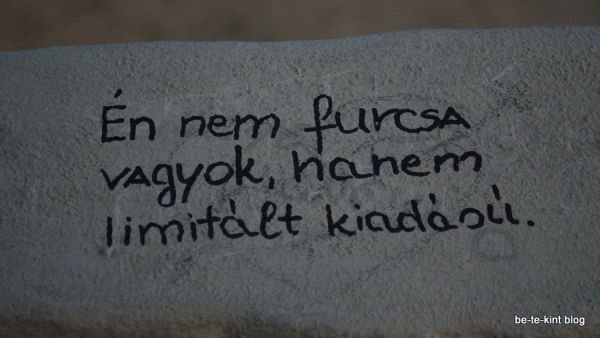 Én nem furcsa
vagyok, hanem
limitált kiadású.
be-te-kint blog